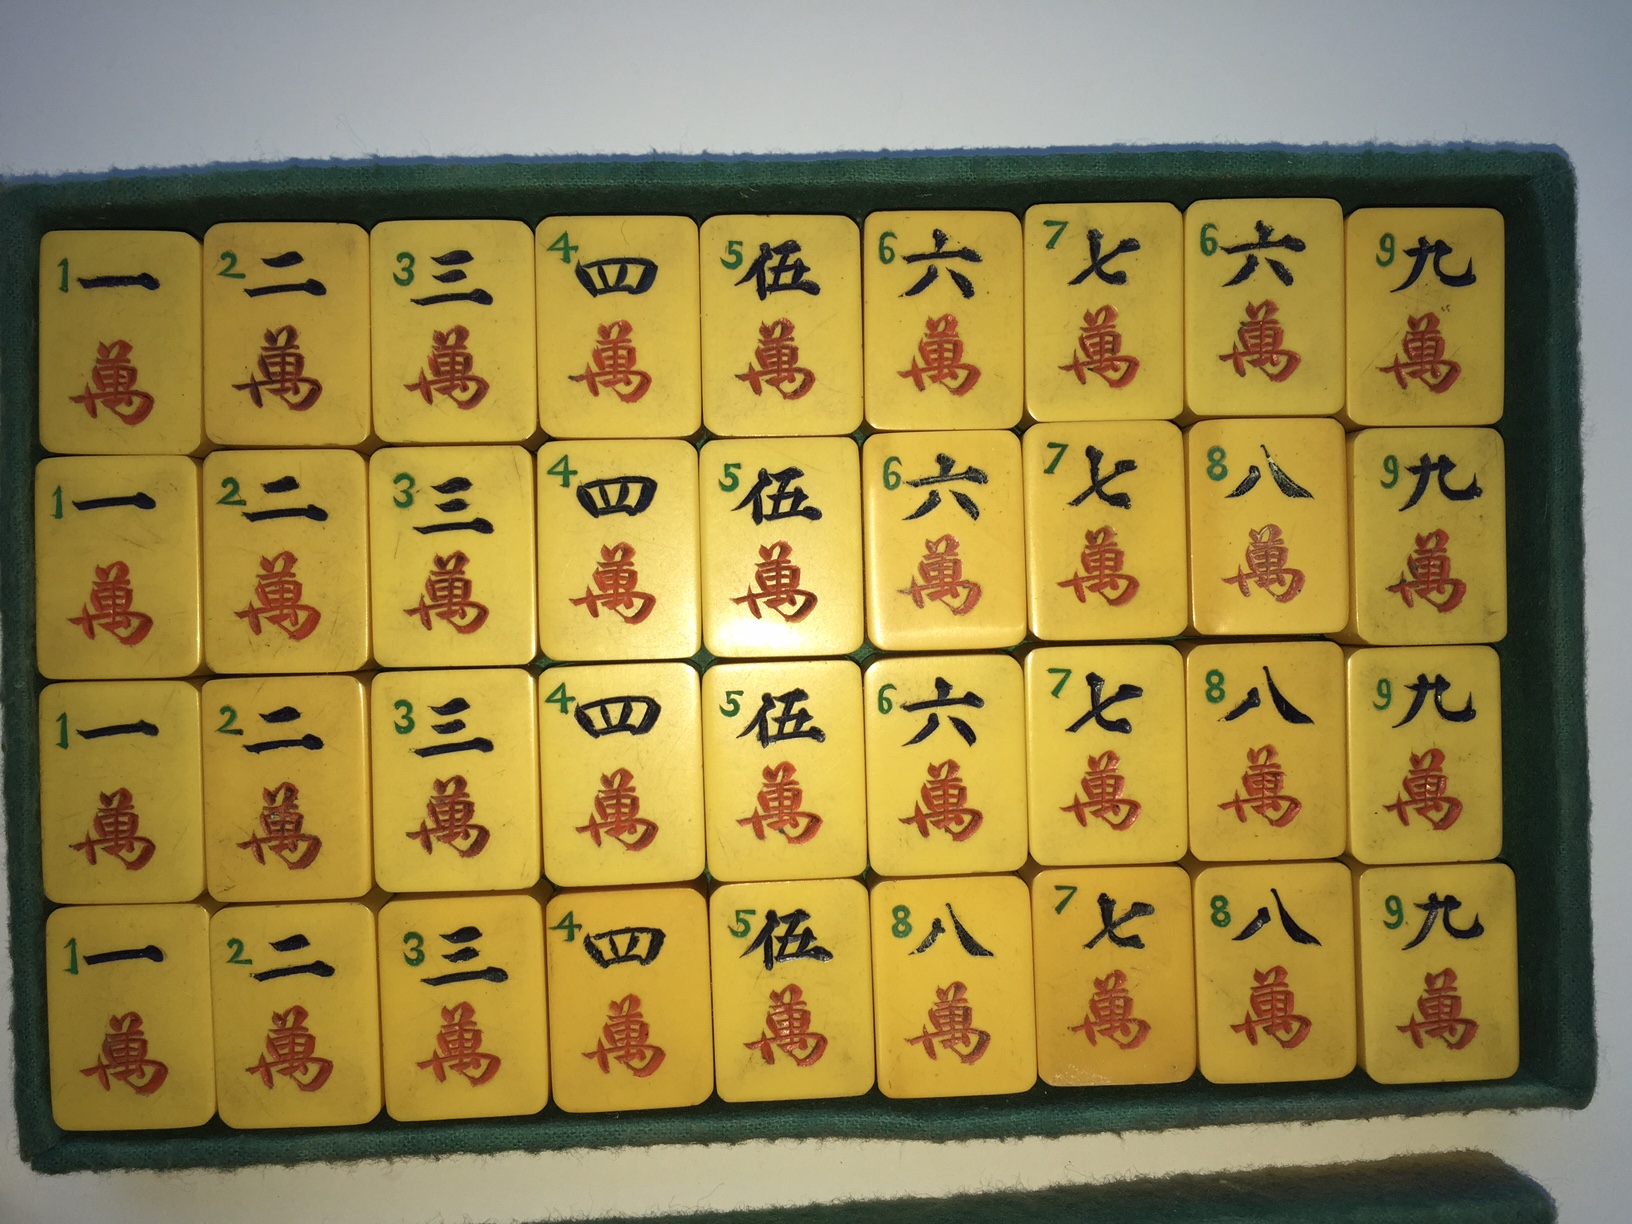 1 一 2 二 3 三 4 四 5 伍 6 六 7 七 6 六 9 九
萬 萬 萬 萬 萬 萬 萬 萬 萬
1 一 2 二 3 三 4 四 5 伍 6 六 7 七 8 八 9 九
萬 萬 萬 萬 萬 萬 萬 萬 萬
1 一 2 二 3 三 4 四 5 伍 6 六 7 七 8 八 9 九
萬 萬 萬 萬 萬 萬 萬 萬 萬
1 一 2 二 3 三 4 四 5 伍 8 八 7 七 8 八 9 九
萬 萬 萬 萬 萬 萬 萬 萬 萬